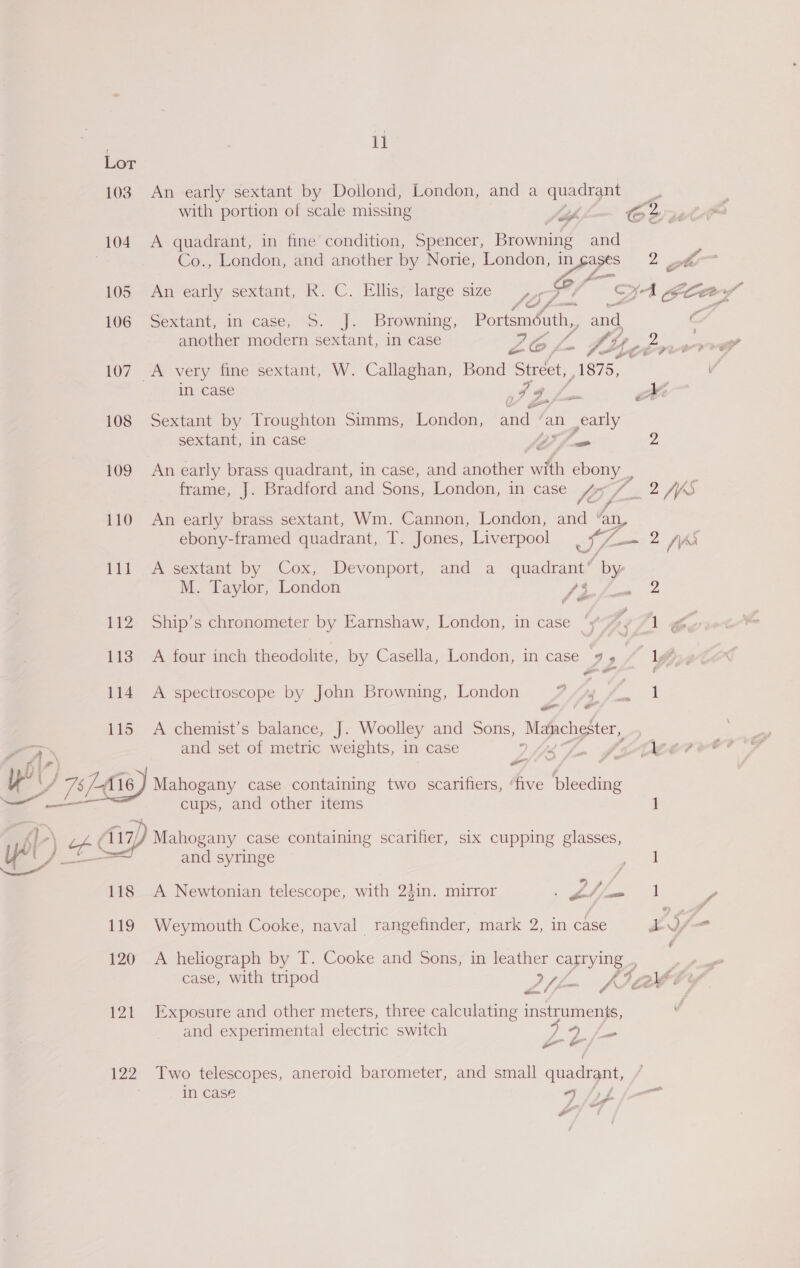 11
Lot
103 An early sextant by Dollond, London, and a quadrant
with portion of scale missing 2
104 A quadrant, in fine condition, Spencer, Browning and
Co., London, and another by Norie, London, in cases 2
105 An early sextant, R. C. Ellis, large size
106 Sextant, in case, S. J. Browning, Portsmouth, and
another modern sextant, in case 2
107 A very fine sextant, W. Callaghan, Bond Street, 1875,
in case
108 Sextant by Troughton Simms, London, and an early
sextant, in case 2
109 An early brass quadrant, in case, and another with ebony
frame, J. Bradford and Sons, London, in case 2
110 An early brass sextant, Wm. Cannon, London, and an
ebony-framed quadrant, T. Jones, Liverpool 2
111 A sextant by Cox, Devonport, and a quadrant by
M. Taylor, London 2
112 Ship's chronometer by Earnshaw, London, in case 1
113 A four inch theodolite, by Casella, London, in case 1
114 A spectroscope by John Browning, London 1
115 A chemist's balance, J. Woolley and Sons, Manchester,
and set of metric weights, in case
116 Mahogany case containing two scarifiers, five bleeding
cups, and other items 1
117 Mahogany case containing scarifier, six cupping glasses,
and syringe 1
118 A Newtonian telescope, with 2½in. mirror 1
119 Weymouth Cooke, naval rangefinder, mark 2, in case
120 A heliograph by T. Cooke and Sons, in leather carrying
case, with tripod
121 Exposure and other meters, three calculating instruments,
and experimental electric switch
122 Two telescopes, aneroid barometer, and small quadrant,
in case